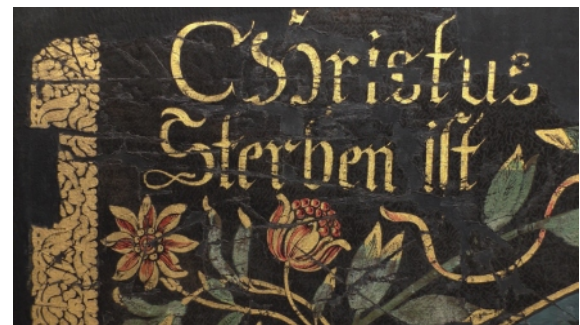 Christus
Sterben ist